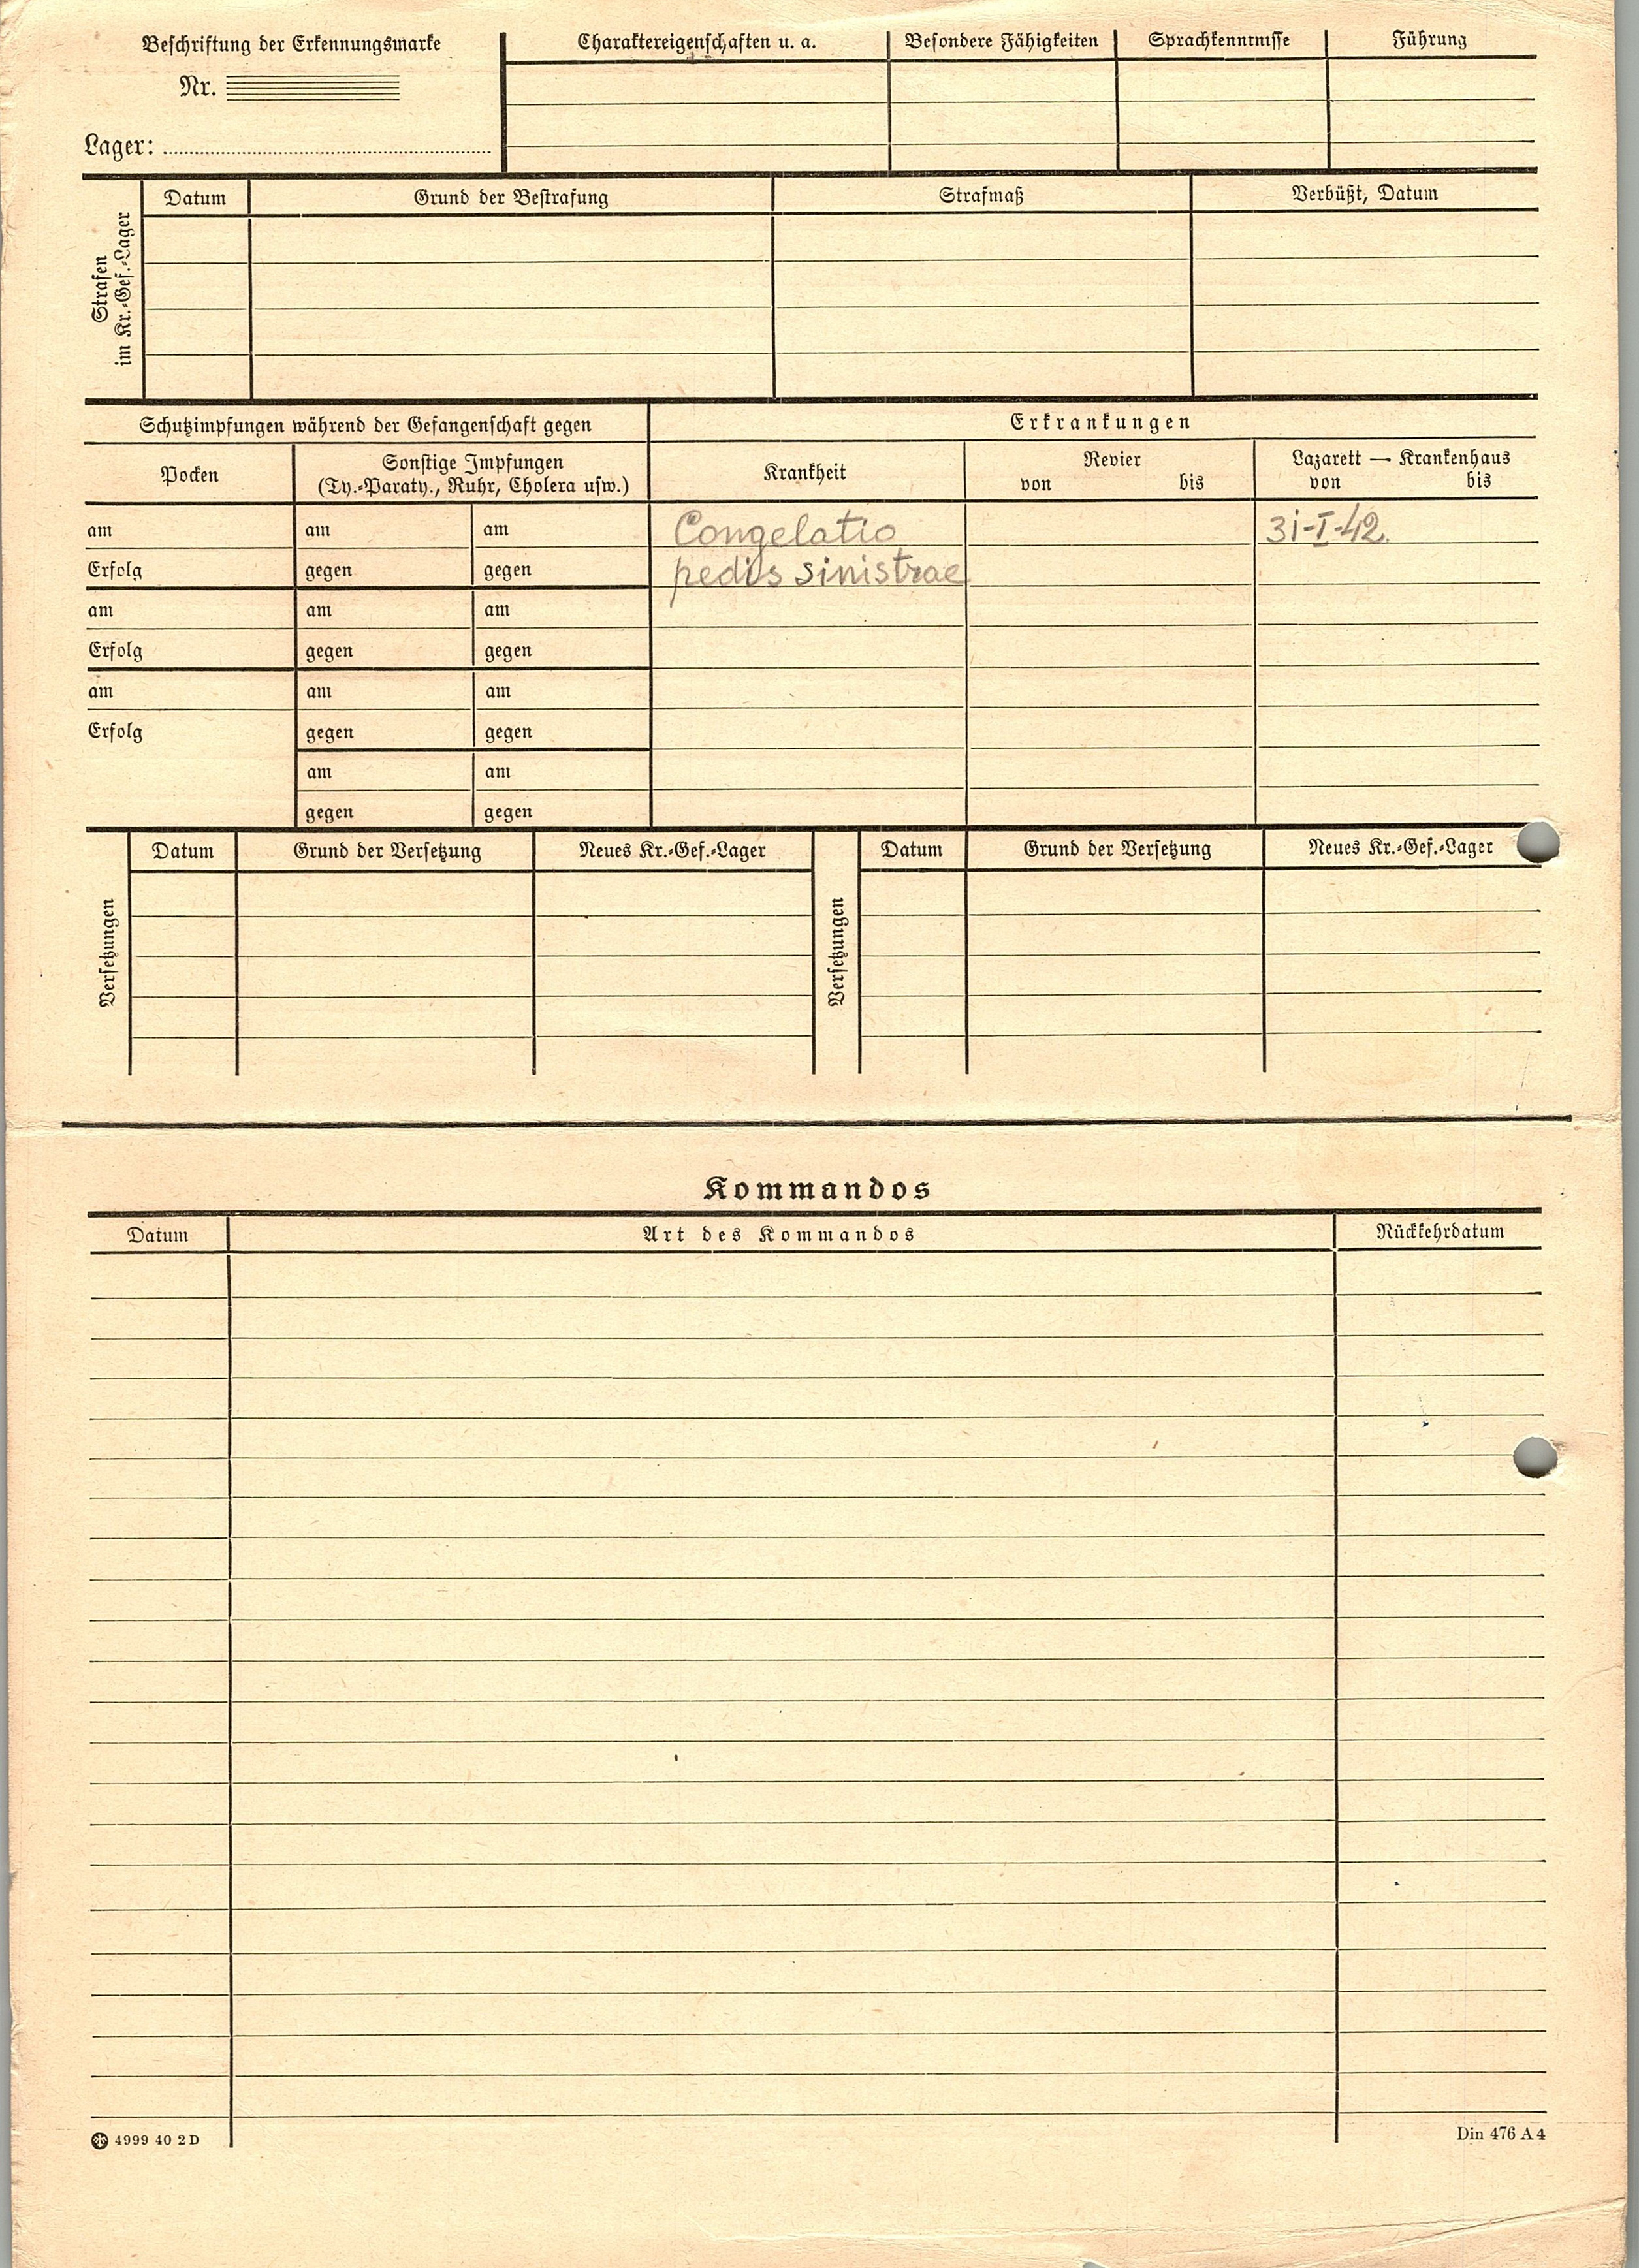 Beschriftung der Erkennungsmarke
Nr.
Lager:
Charaktereigenschaften u. a.
Besondere Fähigkeiten
Sprachkenntnisse
Führung
Strafen
im Kr.-Gef.-Lager
Datum
Grund der Bestrafung
Strafmaß
Verbüßt, Datum
Schutzimpfungen während der Gefangenschaft gegen
Erkrankungen
Pocken
Sonstige Impfungen
(Ty.-Paraty., Ruhr, Cholera usw.)
Krankheit
Revier
von bis
Lazarett — Krankenhaus
von bis
am am am Congelatio 31-I-42.
Erfolg gegen gegen pedis sinistrae
am am am
Erfolg gegen gegen
am am am
Erfolg gegen gegen
am am
gegen gegen
Versetzungen
Datum
Grund der Versetzung
Neues Kr.-Gef.-Lager
Versetzungen
Datum
Grund der Versetzung
Neues Kr.-Gef.-Lager
Kommandos
Datum
Art des Kommandos
Rückkehrdatum
4999 40 2 D
Din 476 A 4